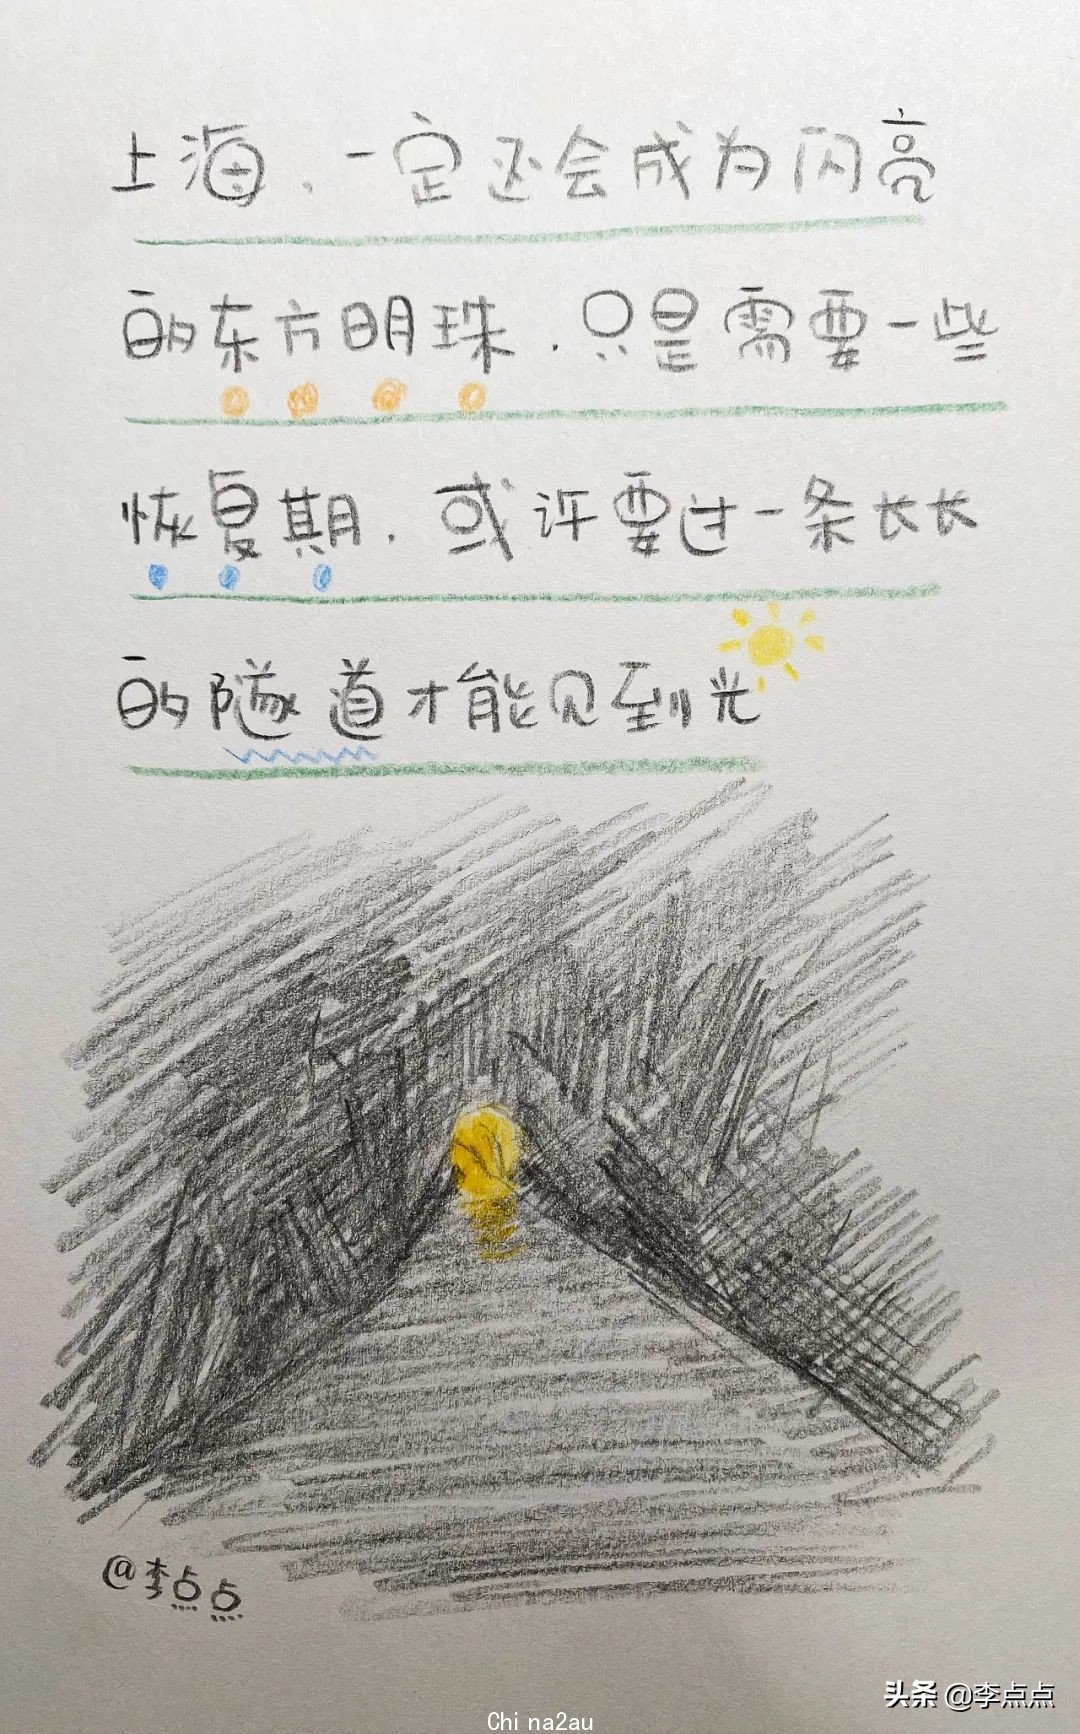 上海，一定还会成为闪亮
的东方明珠，只是需要一些
恢复期，或许要过一条长长
的隧道才能见到光
@李点点
头条 @李点点
Chi na2au